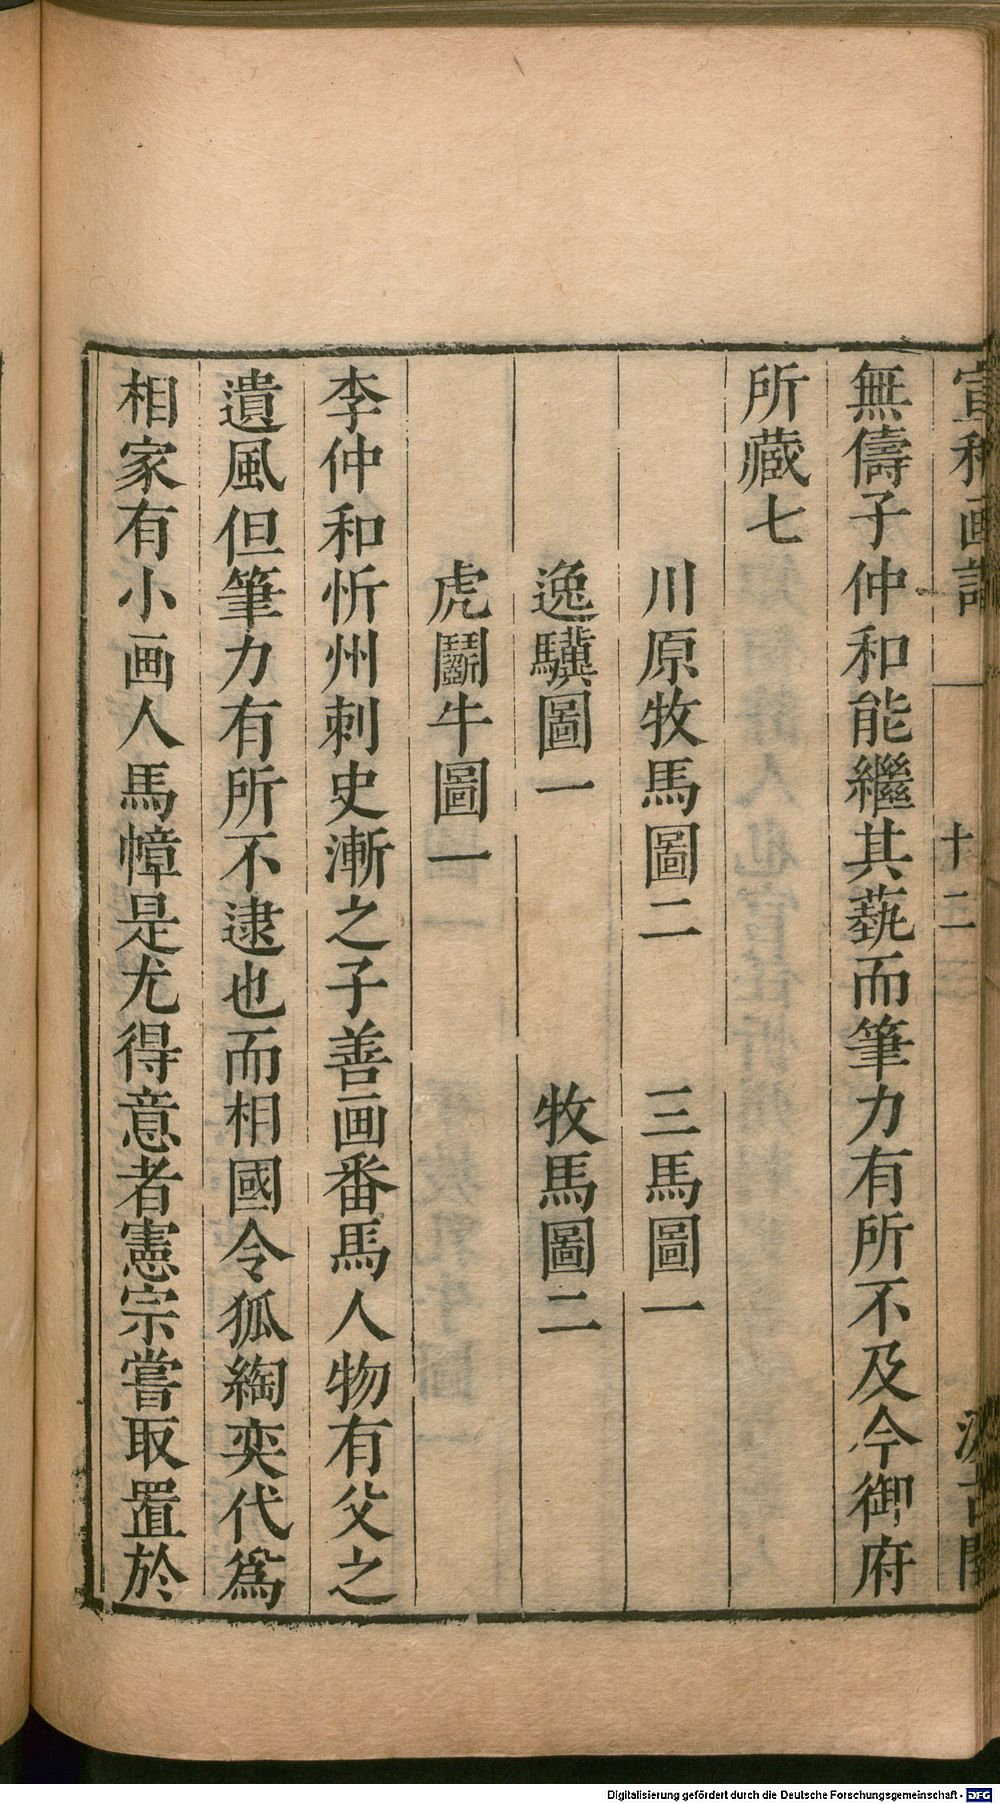 宣和画譜 十二 汲古閣
無儔子仲和能繼其藝而筆力有所不及今御府
所藏七
川原牧馬圖二 三馬圖一
逸驥圖一 牧馬圖二
虎鬭牛圖一
李仲和忻州刺史漸之子善画番馬人物有父之
遺風但筆力有所不逮也而相國令狐綯奕代爲
相家有小画人馬幛是尤得意者憲宗嘗取置於
Digitalisierung gefördert durch die Deutsche Forschungsgemeinschaft - DFG